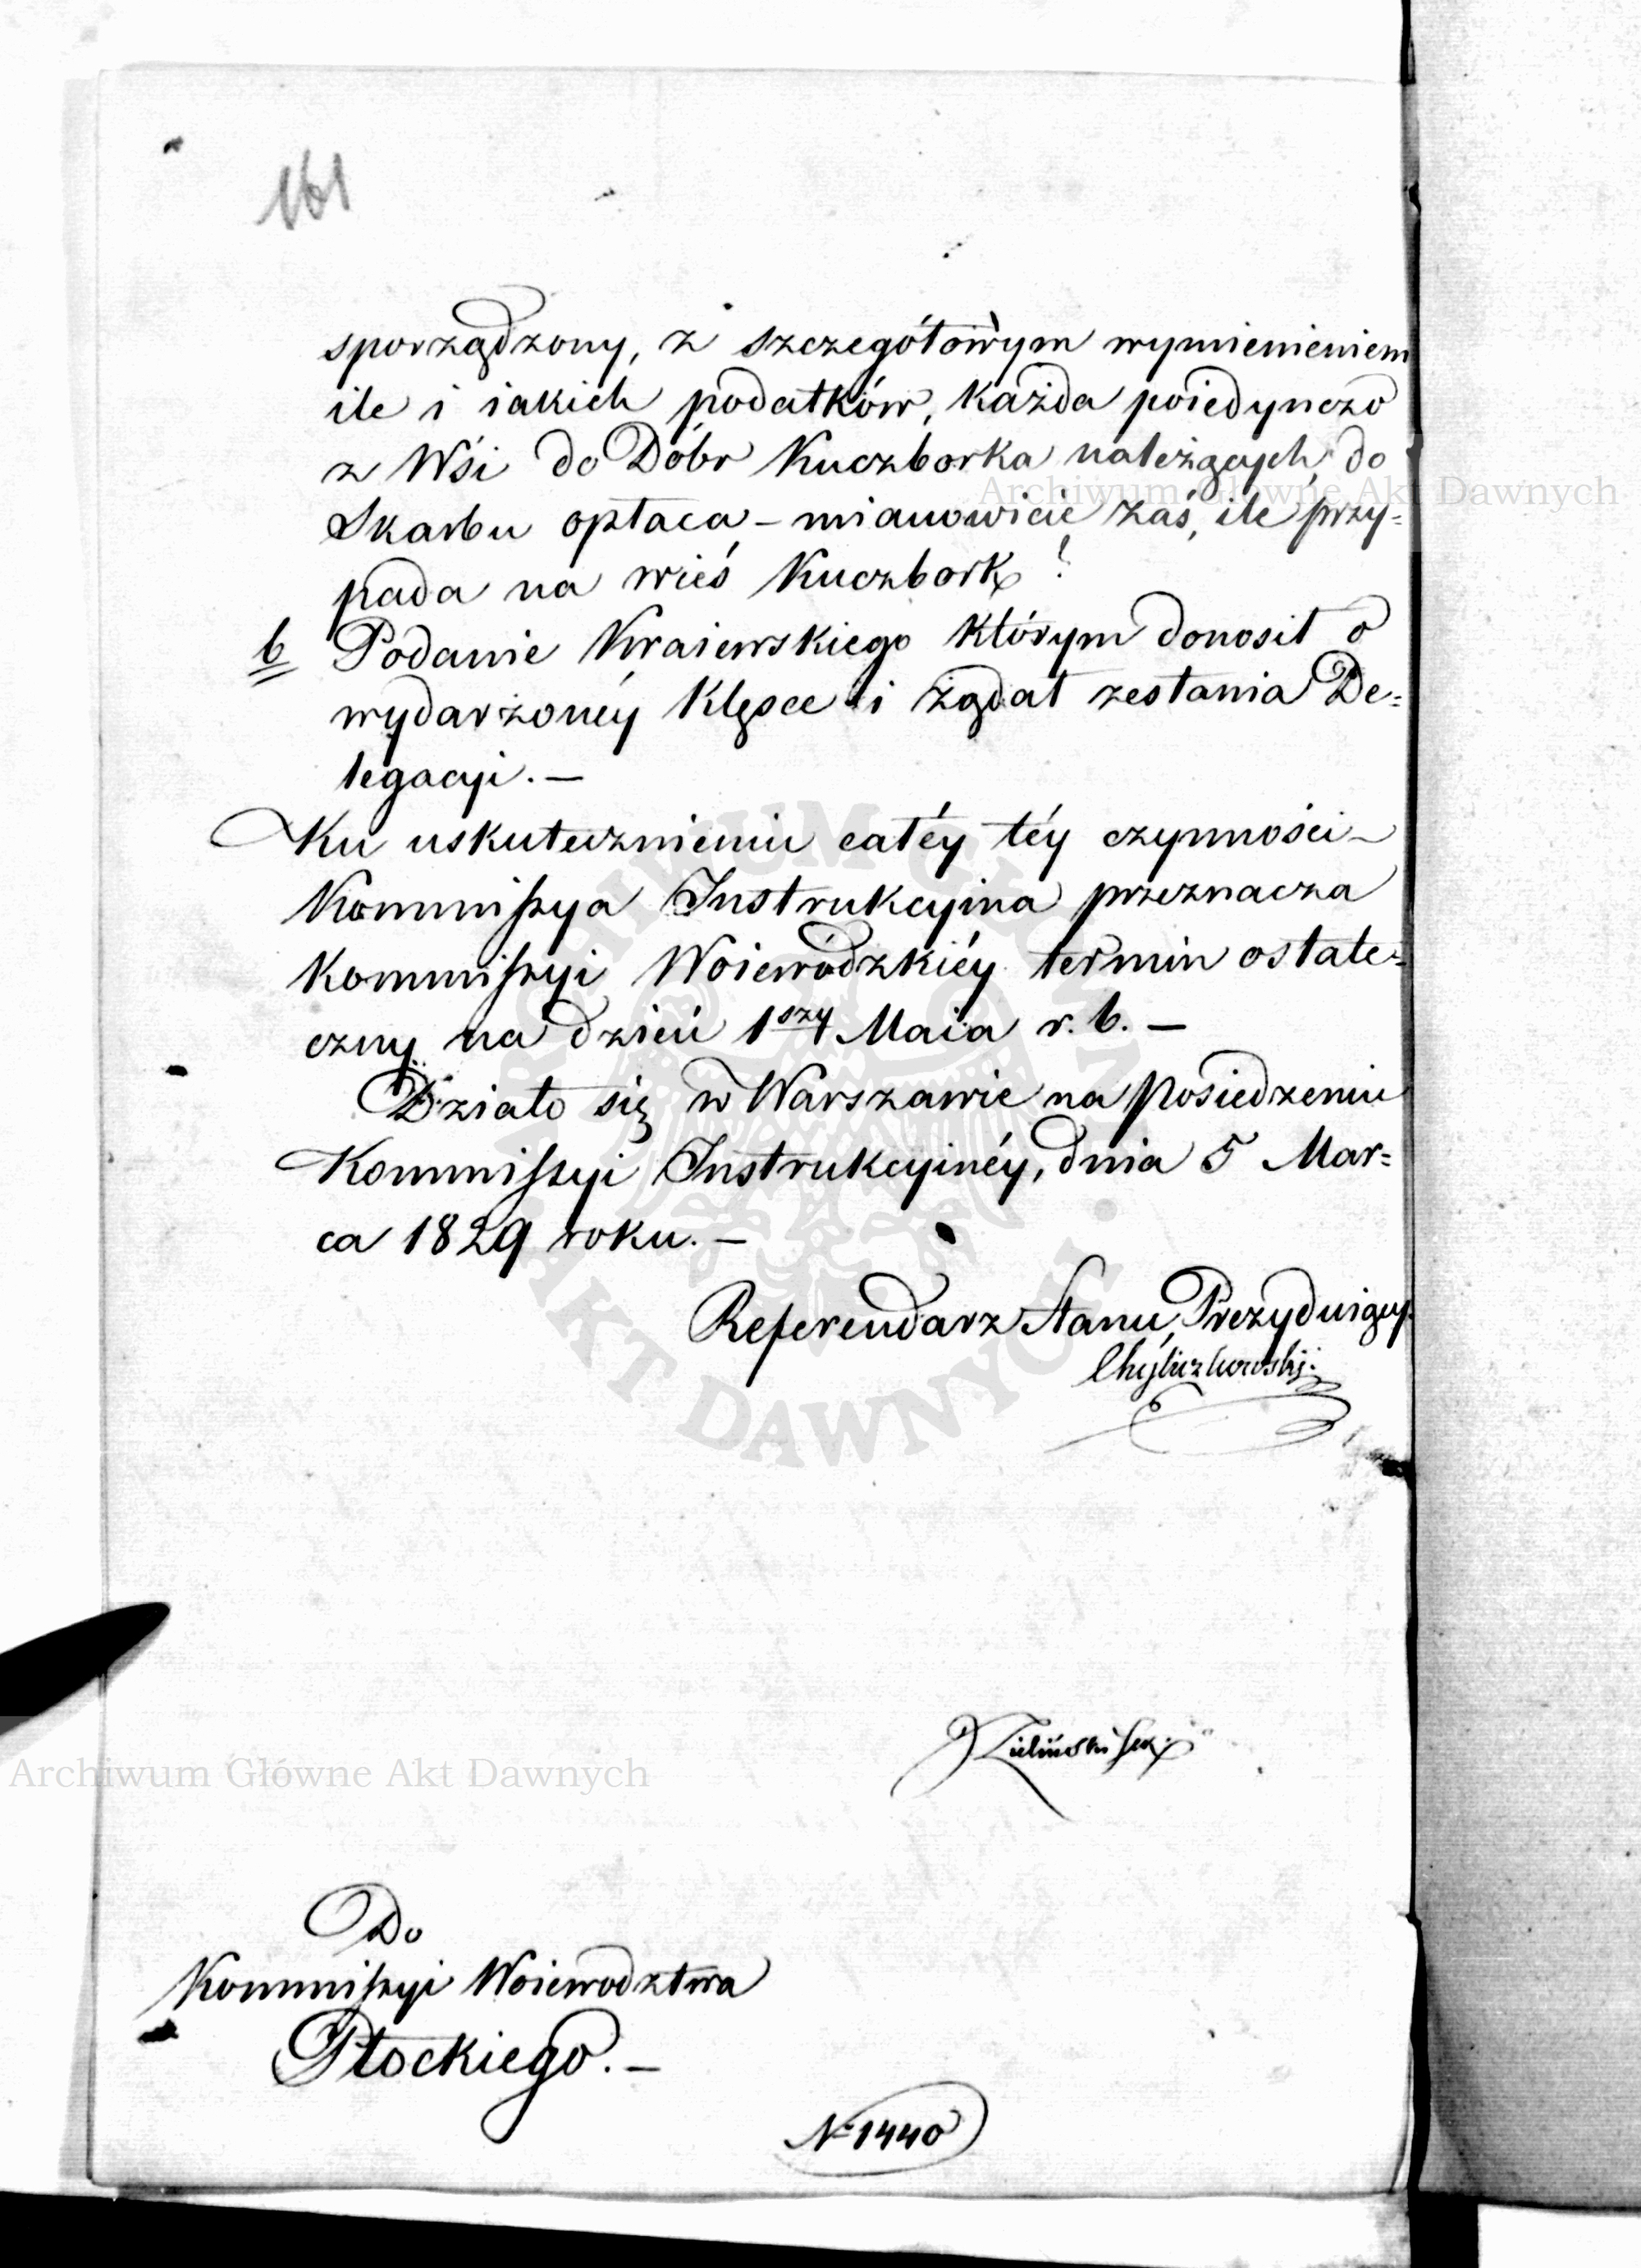 161
sporządzony, z szczegółowym wymienieniem
ile i iakich podatków, każda poiedynczo
z Wsi do Dóbr Kuczborka należących do
Skarbu opłaca – mianowicie zaś, ile przy=
pada na wieś Kuczbork?
b Podanie Kraiewskiego którym donosił o
wydarzonéy klęsce i żądał zesłania De=
legacyi. —
Ku uskutecznieniu całéy téy czynności –
Kommissya Instrukcyina przeznacza
Kommissyi Woiewódzkiéy termin ostate=
czny na dzień 1szy Maia r. b. —
Działo się w Warszawie na Posiedzeniu
Kommissyi Instrukcyinéy, dnia 5 Mar=
ca 1829 roku. —
Referendarz Stanu, Prezyduiący
Chyliczkowski
Zieliński Sek.
Do
Kommissyi Woiewodztwa
Płockiego. —
N 1440
Archiwum Główne Akt Dawnych
Archiwum Główne Akt Dawnych
ARCHIWUM GŁÓWNE AKT DAWNYCH